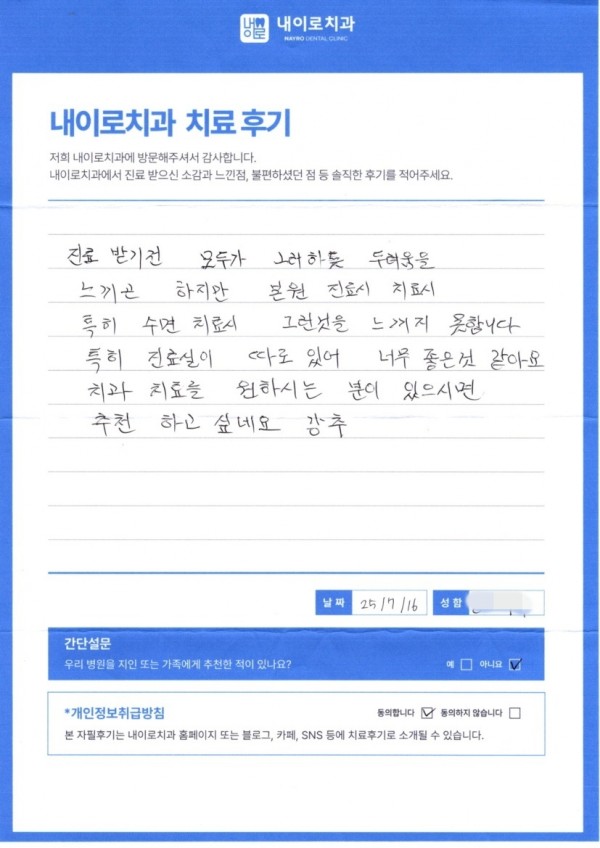 내이로치과
NAYRO DENTAL CLINIC
내이로치과 치료 후기
저희 내이로치과에 방문해주셔서 감사합니다.
내이로치과에서 진료 받으신 소감과 느낀점, 불편하셨던 점 등 솔직한 후기를 적어주세요.
진료 받기전 모두가 그러하듯 두려움을
느끼곤 하지만 본원 진료시 치료시
특히 수면 치료시 그런것을 느끼지 못합니다
특히 진료실이 따로 있어 너무 좋은것 같아요
치과 치료를 원하시는 분이 있으시면
추천 하고 싶네요 강추
날짜 25/7/16 성함
간단설문
우리 병원을 지인 또는 가족에게 추천한 적이 있나요? 예 아니요
*개인정보취급방침 동의합니다 동의하지 않습니다
본 자필후기는 내이로치과 홈페이지 또는 블로그, 카페, SNS 등에 치료후기로 소개될 수 있습니다.